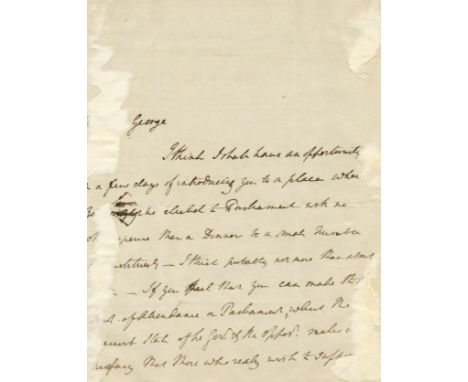 George
I think I shall have an opportunity
a few days of introducing you to a place where
be elected to Parliament with no
expence than a Dinner to a small Number
— I think probably not more than about
— If you feel that you can make the
of Attendance in Parliament, where the
State of the Gov.t & the oppos.n makes
that those who really wish to support